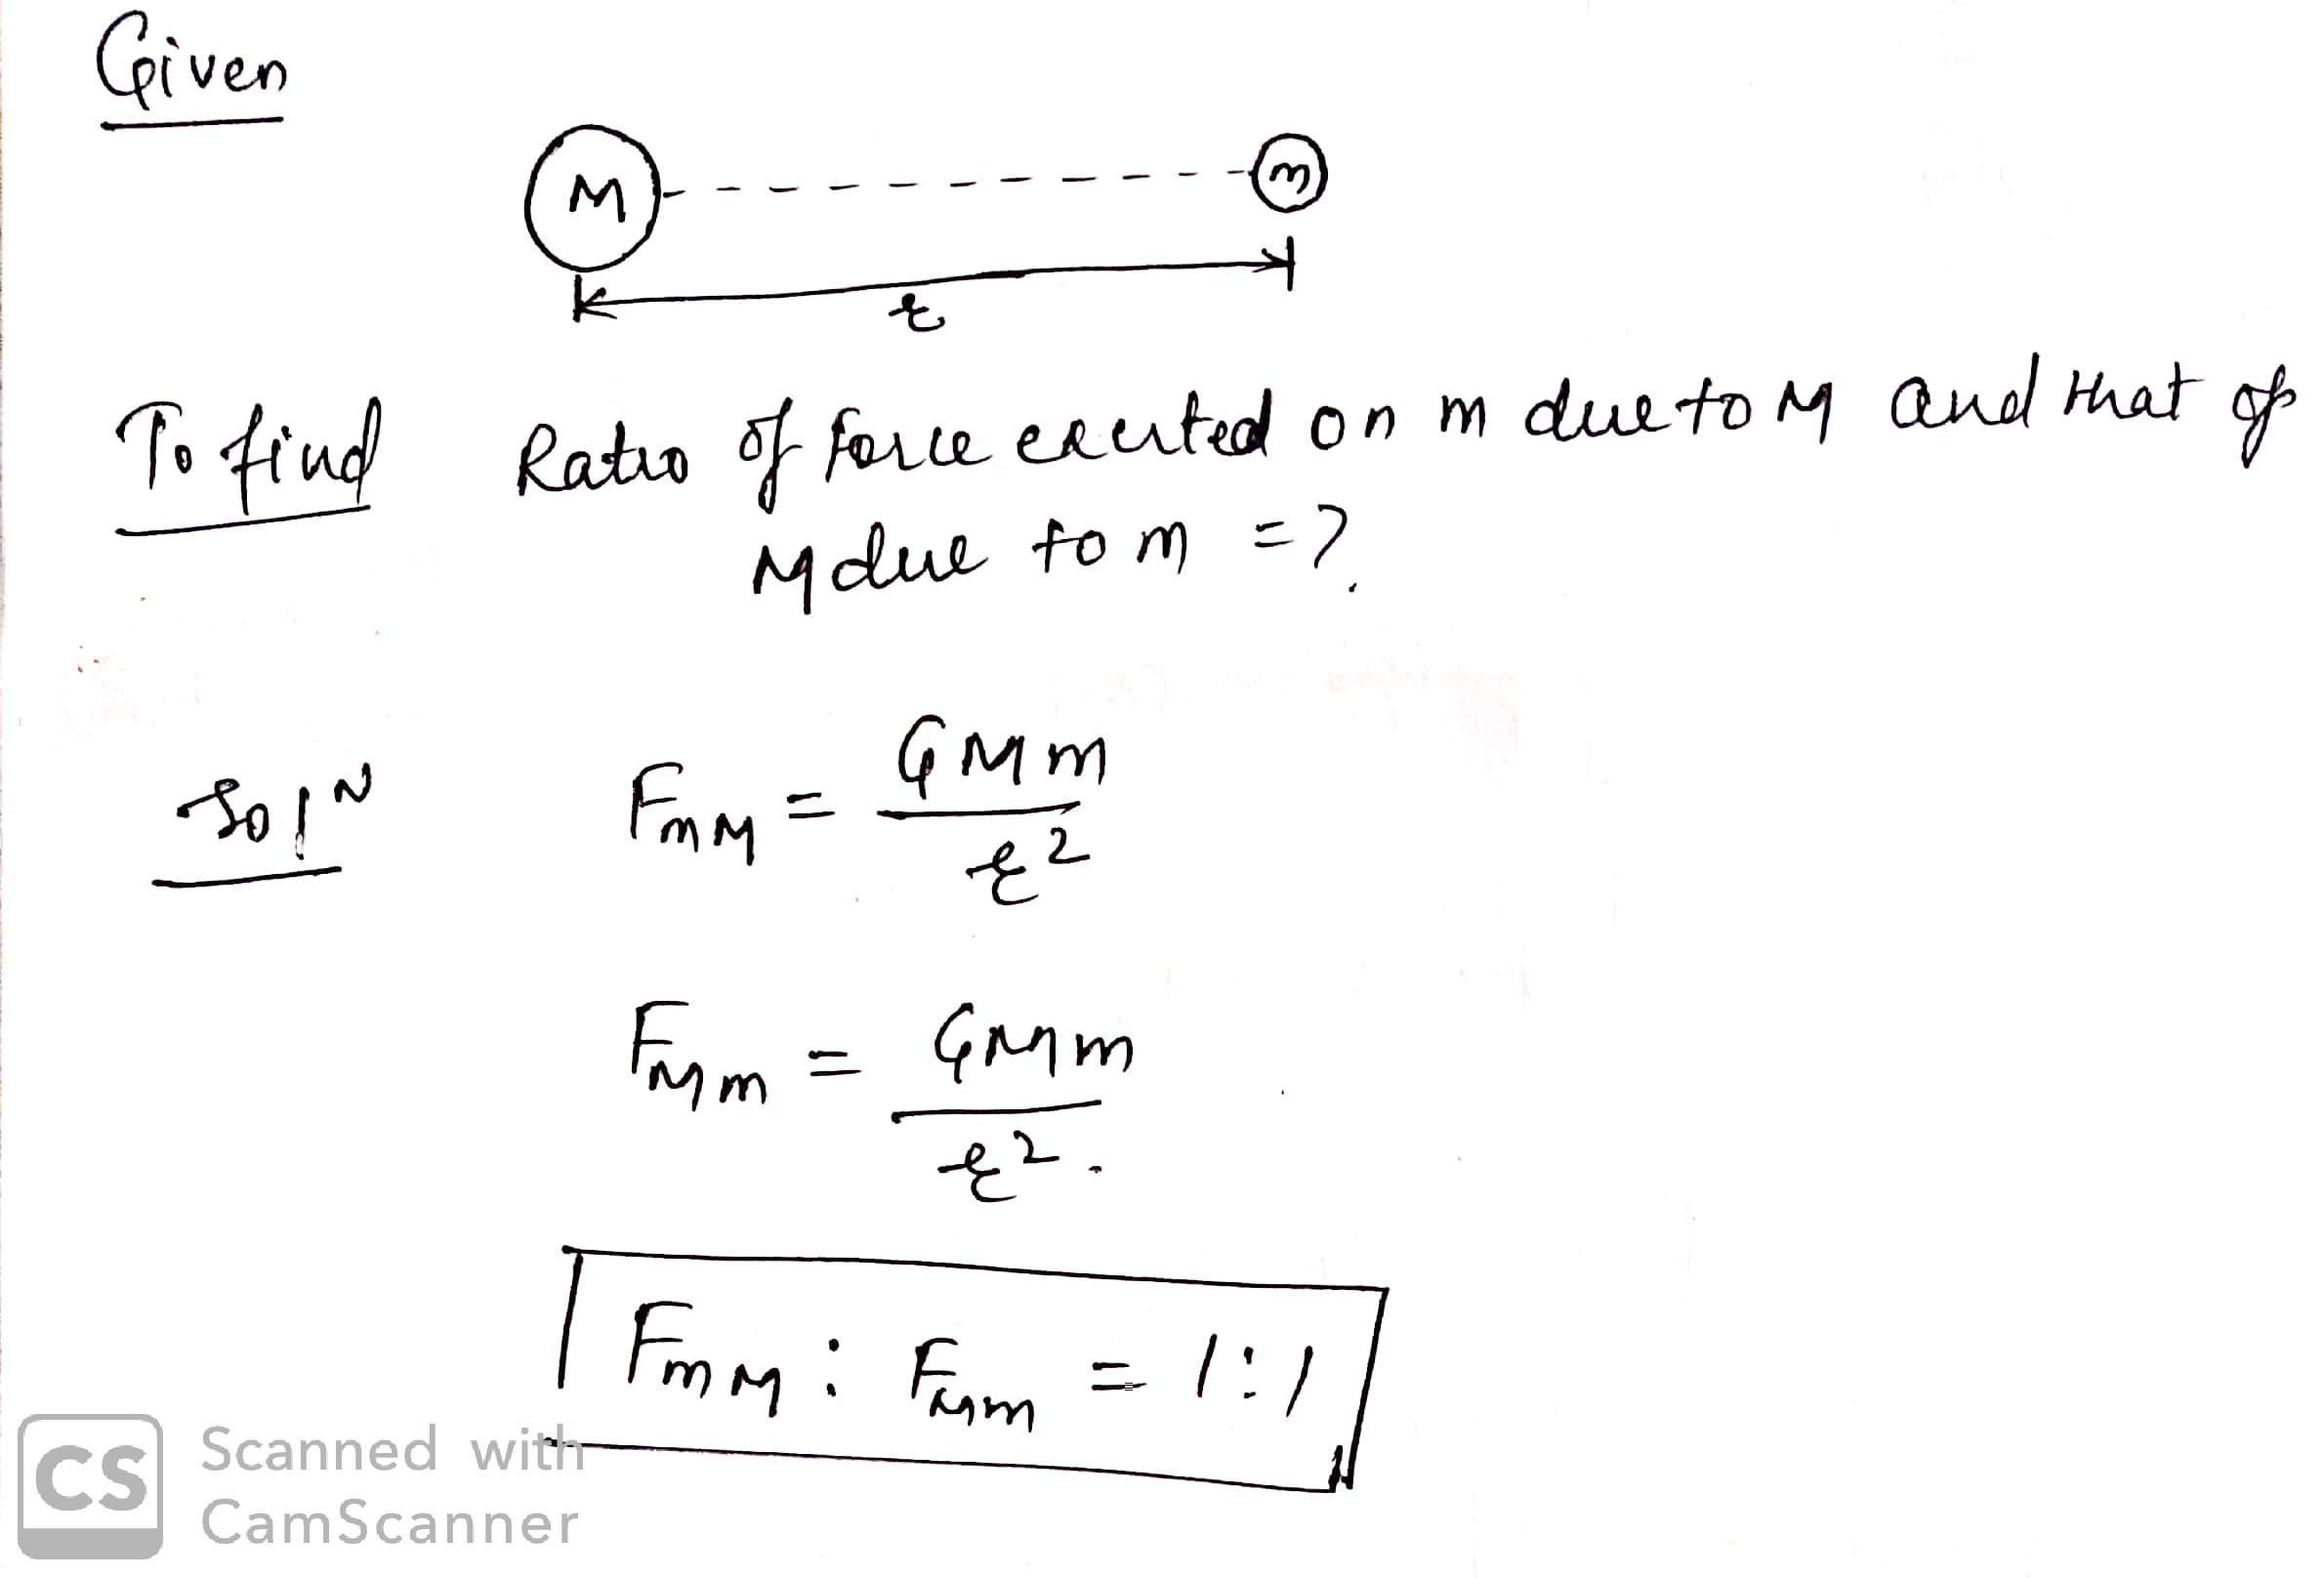 Given
M m
r
To find Ratio of Force exerted on m due to M and that of
M due to m = ?
SolN FmM = GMm
r2
FMm = GMm
r2.
FmM : FMm = 1:1
CS Scanned with
CamScanner